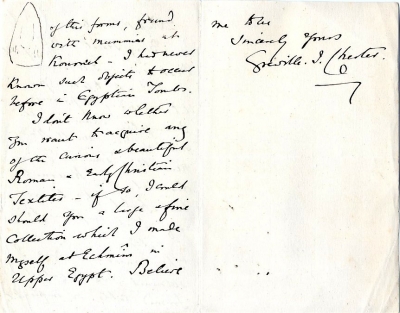 of this form, found
with mummies at
I had never
known such objects to occur
before in Egyptian Tombs.
I don't know whether
you want to acquire any
of the curious & beautiful
Roman & Early Christian
Textiles - if so, I could
you a large & fine
Collection which I made
myself at Echmim in
Upper Egypt. Believe
me to be
Sincerely Yours
Greville. J. Chester.